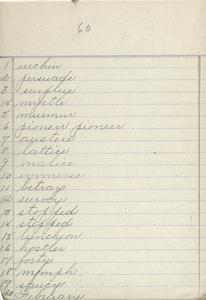 60
1 urchin
2 persuade
3 surplus
4 myrtle
5 murmur
6 pioner pioneer
7 austere
8 lattice
9 malice
10 immerse
11 betray
12 survey
13 stopped
14 stepped
15 luncheon
16 hostler
17 forty
18 nymph
19 saucy
20 February